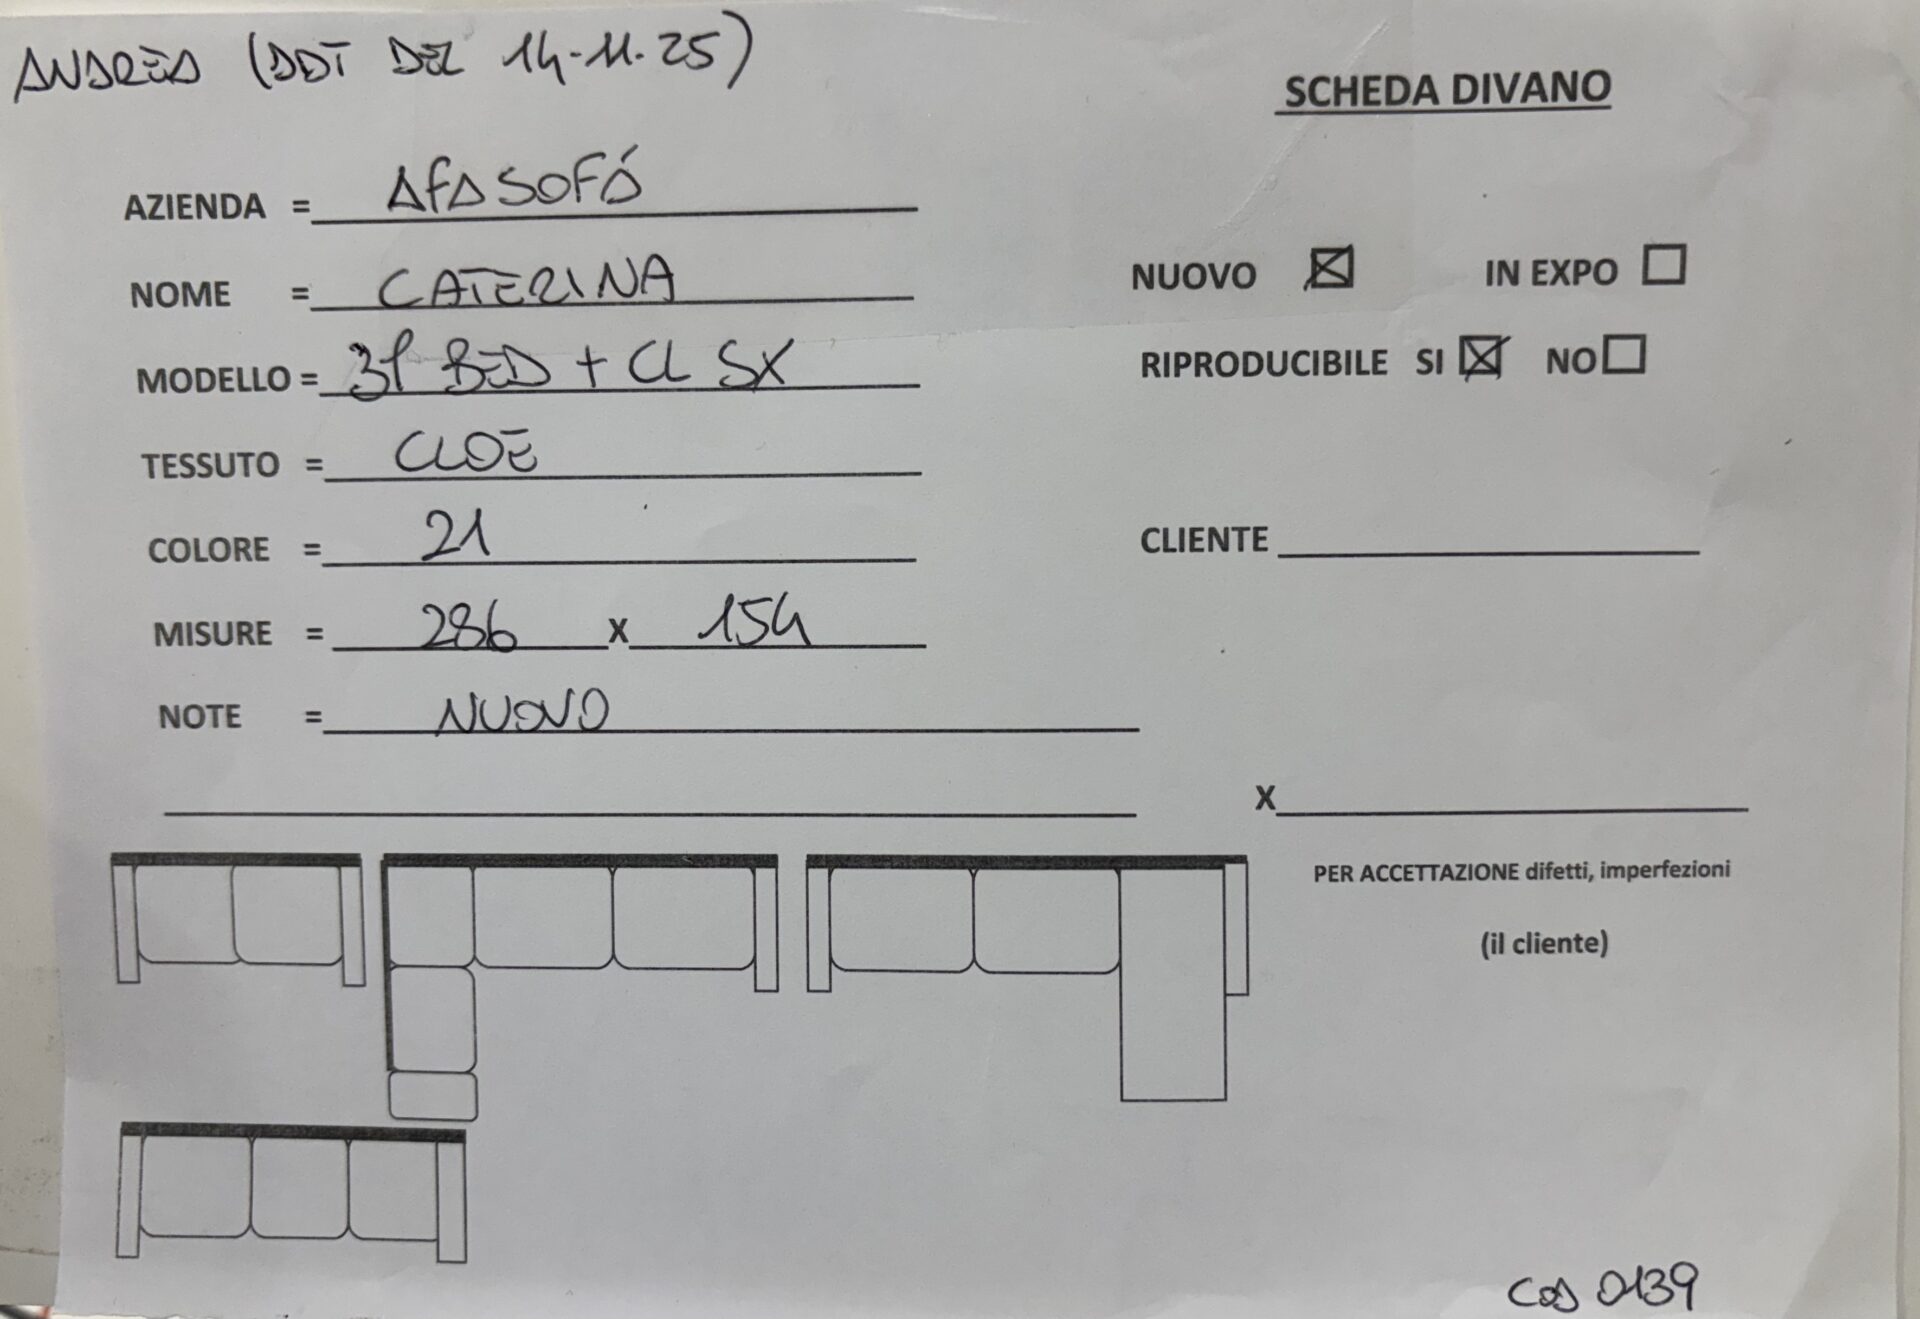 ANDREA (DDT DEL 14-11-25)
SCHEDA DIVANO
AZIENDA = AFA SOFÁ
NOME = CATERINA
NUOVO ☒ IN EXPO ☐
MODELLO = 3P BED + CL SX
RIPRODUCIBILE SI ☒ NO ☐
TESSUTO = CLOE
COLORE = 21
CLIENTE
MISURE = 286 X 154
NOTE = NUOVO
X
PER ACCETTAZIONE difetti, imperfezioni
(il cliente)
COD 0139